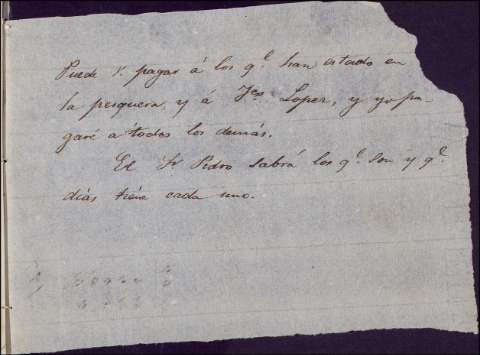 Puede V. pagar á los q.e han estado en
la pesquera, y á Fco. Lopez, y yo pa-
garé a todos los demás.
El Sr Pedro sabrá los q.e son y q.e
dias tiene cada uno.